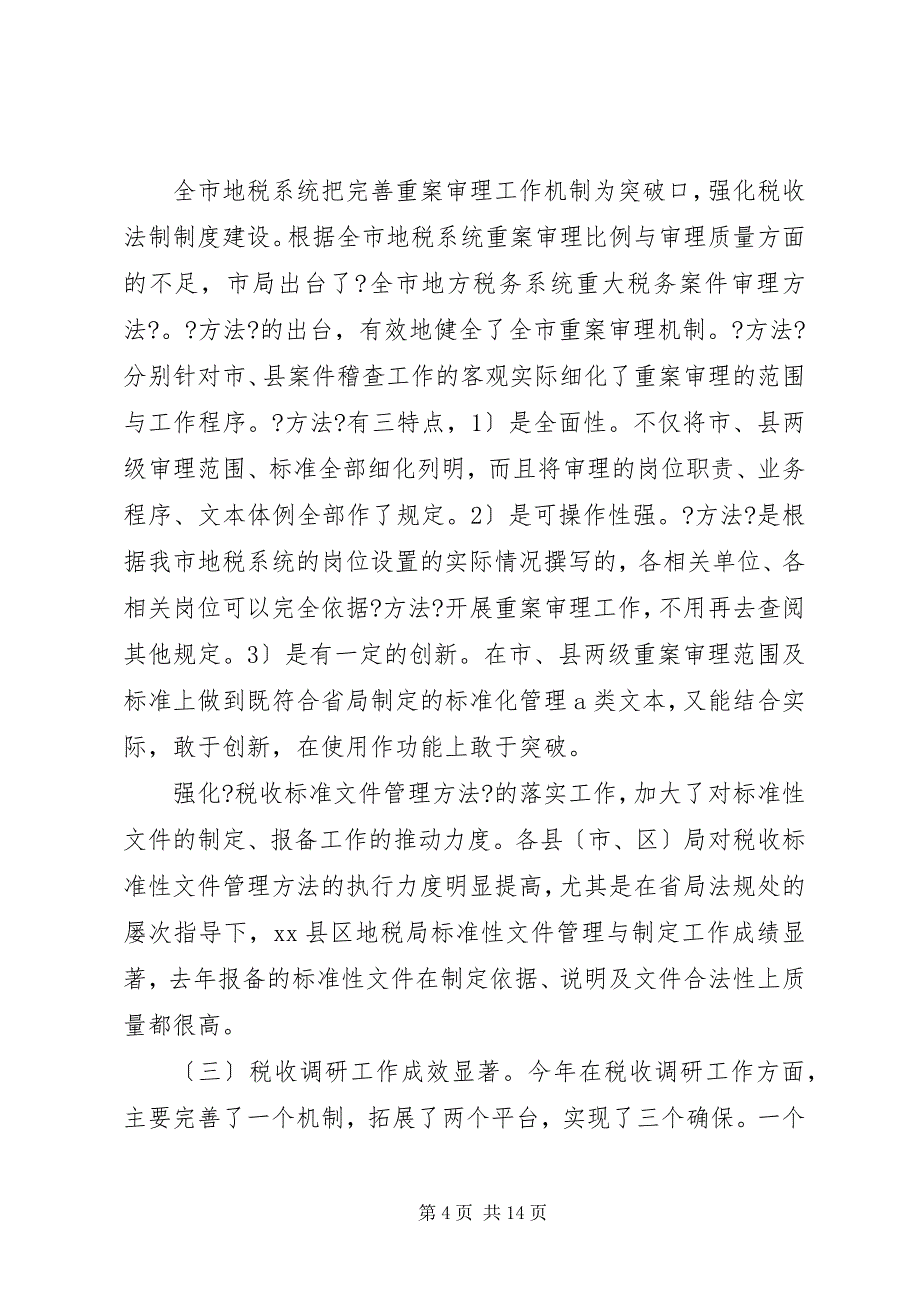 全市地税系统把完善重案审理工作机制为突破口，强化税收
法制制度建设。根据全市地税系统重案审理比例与审理质量方面
的不足，市局出台了?全市地方税务系统重大税务案件审理方
法?。?方法?的出台，有效地健全了全市重案审理机制。?方法?
分别针对市、县案件稽查工作的客观实际细化了重案审理的范围
与工作程序。?方法?有三特点，1〕是全面性。不仅将市、县两
级审理范围、标准全部细化列明，而且将审理的岗位职责、业务
程序、文本体例全部作了规定。2〕是可操作性强。?方法?是根
据我市地税系统的岗位设置的实际情况撰写的，各相关单位、各
相关岗位可以完全依据?方法?开展重案审理工作，不用再去查阅
其他规定。3〕是有一定的创新。在市、县两级重案审理范围及
标准上做到既符合省局制定的标准化管理a类文本，又能结合实
际，敢于创新，在使用作功能上敢于突破。
强化?税收标准文件管理方法?的落实工作，加大了对标准性
文件的制定、报备工作的推动力度。各县〔市、区〕局对税收标
准性文件管理方法的执行力度明显提高，尤其是在省局法规处的
屡次指导下，xx县区地税局标准性文件管理与制定工作成绩显
著，去年报备的标准性文件在制定依据、说明及文件合法性上质
量都很高。
〔三〕税收调研工作成效显著。今年在税收调研工作方面，
主要完善了一个机制，拓展了两个平台，实现了三个确保。一个
第4页 共14页